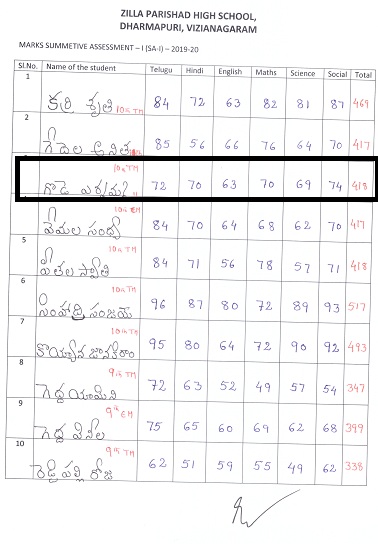 ZILLA PARISHAD HIGH SCHOOL,
DHARMAPURI, VIZIANAGARAM
MARKS SUMMETIVE ASSESSMENT – I (SA-I) – 2019-20
Sl.No. Name of the student Telugu Hindi English Maths Science Social Total
1 కర్రి శృతి 10th TM 84 72 63 82 81 87 469
2 గేదెల 85 56 66 76 64 70 417
10th TM
గొడె 72 70 63 70 69 74 418
10th EM
వేమల సంధ్య 84 70 64 68 62 70 417
5 10th TM
పీతల స్వాతి 84 71 56 78 57 71 418
6 10th TM
సింహాద్రి సంజయ్ 96 87 80 72 89 93 517
7 10th TM
కొయ్యాన జానకిరాం 95 80 64 72 90 92 493
8 9th TM
గెద్ద యామిని 72 63 52 49 57 54 347
9 9th EM
గెద్ద వినీల 75 65 60 69 62 68 399
10 9th TM
రెడ్డిపల్లి రోజా 62 51 59 55 49 62 338